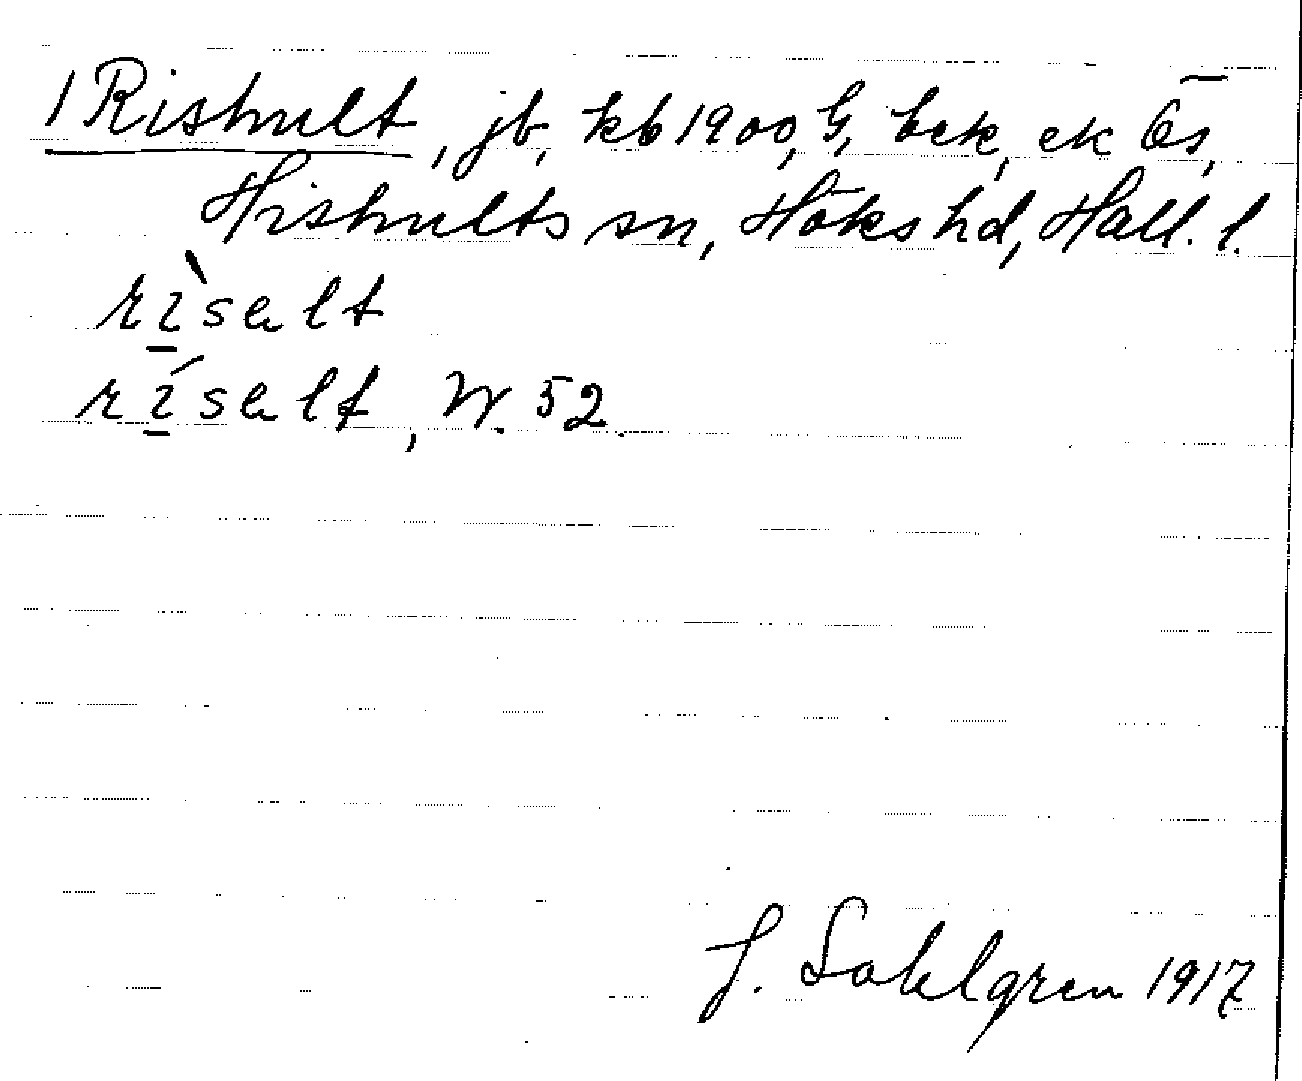 1 Rishult, jb, kb 1900, G, bek, ek Ös,
Hishults sn, Höks hd, Hall. l.
rìsalt
rísalt, W. 52.
J. Sahlgren 1917